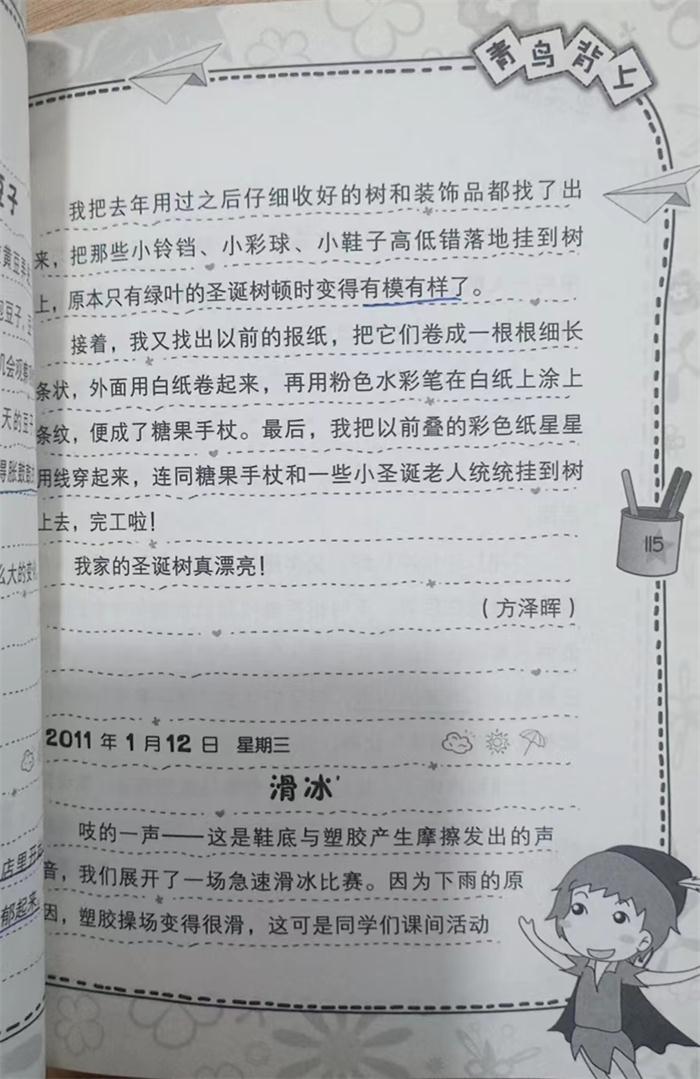 青鸟背上
我把去年用过之后仔细收好的树和装饰品都找了出
来，把那些小铃铛、小彩球、小鞋子高低错落地挂到树
上，原本只有绿叶的圣诞树顿时变得有模有样了。
接着，我又找出以前的报纸，把它们卷成一根根细长
条状，外面用白纸卷起来，再用粉色水彩笔在白纸上涂上
条纹，便成了糖果手杖。最后，我把以前叠的彩色纸星星
用线穿起来，连同糖果手杖和一些小圣诞老人统统挂到树
上去，完工啦！
我家的圣诞树真漂亮！
（方泽晖）
115
2011 年 1 月 12 日 星期三
滑冰
吱的一声——这是鞋底与塑胶产生摩擦发出的声
音，我们展开了一场急速滑冰比赛。因为下雨的原
因，塑胶操场变得很滑，这可是同学们课间活动
豆子
黄豆
豆子，
机会观察
天的豆子
得胀鼓鼓
么大的变
店里
郁起来